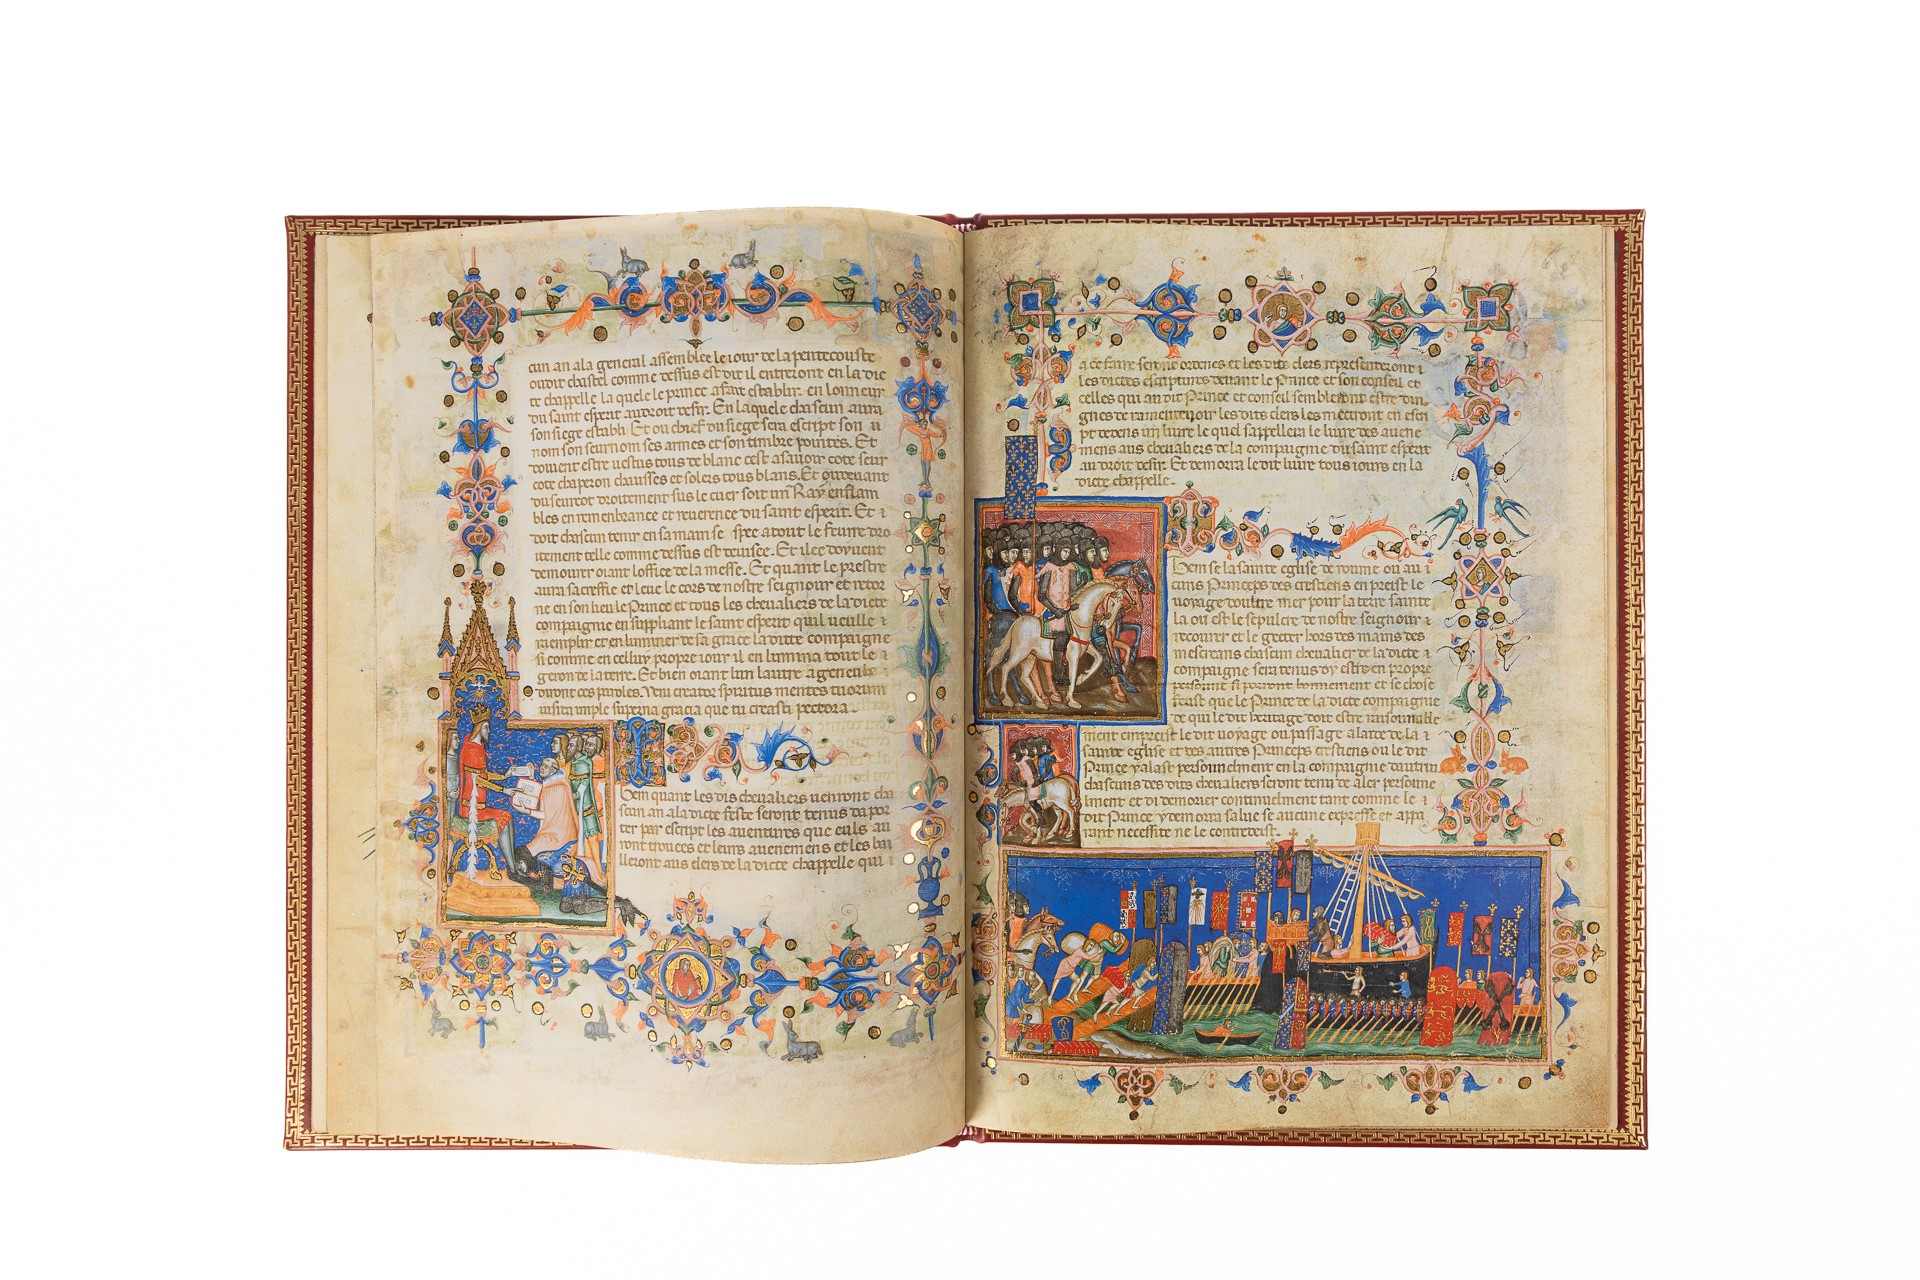 cun an ala general assemblee le iour de la pentecouste
ou dit chastel comme dessus est dit il entreront en la dic
te chappelle la quele le prince a fait establir en lonneur
du saint esperit au droit desir. En la quele chascun aura
son siege establi Et ou chief du siege sera escript son
nom son seurnom ses armes et son timbre pointes. Et
doiuent estre uestus tous de blanc cest asauoir cote seur
cote chaperon chausses et solers tous blans. Et ou tenant
du seurcot droitement sus le cuer soit un Ray enflam
bles en remenbrance et reuerence du saint esperit. Et
doit chascun tenir en sa main se sper atout le feurre dro
itement telle comme dessus est deuisee. Et ilec doyuent
demourer oiant loffice de la messe. Et quant le prestre
aura sacreffie et leue le cors de nostre seignour et retor
ne en son lieu le Prince et tous les cheualiers de la dicte
compaignie en suppliant le saint esperit quil ueille
raemplir et enluminer de sa grace la ditte compaignie
si comme en celluy propre iour il enlumina tout le
geron de la terre. Et bien oiant lun lautre agenels
diront ces paroles. Veni creator spiritus mentes tuorum
uisita imple superna gracia que tu creasti pectora.
Item quant les dis cheualiers uenront cha
scun an ala dicte feste seront tenus da por
ter par escript les auentures que euls au
ront trouees et leurs auenemens et les bai
lleront aus clers de la dicte chappelle qui
a ce faire seront ordenes et les ditz clers representeront
les dictes escriptures deuant le Prince et son conseil et
celles qui au dit Prince et conseil sembleront estre dui
gnes de ramenteuoir les dits clers les mettront en escri
pt dedens un liure le quel sappellera le liure des auene
mens aus cheualiers de la compaignie du saint esperit
au droit desir. Et demorra le dit liure tous iours en la
dicte chappelle.
Item se la sainte eglise de roume ou au
cuns Princeps des crestiens enpreist le
uoyage doultre mer pour la terre sainte
la ou est le sepulcre de nostre seignour
recourer et le gecter hors des mains des
mescreans chascun cheualier de la dicte
compaignie sera tenus dy estre en propre
personne si porront bonnement et se chose
feust que le Prince de la dicte compaignie
de qui le dit heritage doit estre raisonnable
ment empreist le dit uoyage ou passage alarce de la
sainte eglise et des autres Princeps crestiens ou le dit
Prince y alast personnelment en la compaignie dautrui
chascuns des dits cheualiers seront tenu de aler personne
lment et di demorer continuelment tant comme le
dit Prince y demorra salue se aucune expresse et appa
rant necessite ne le contredeist.